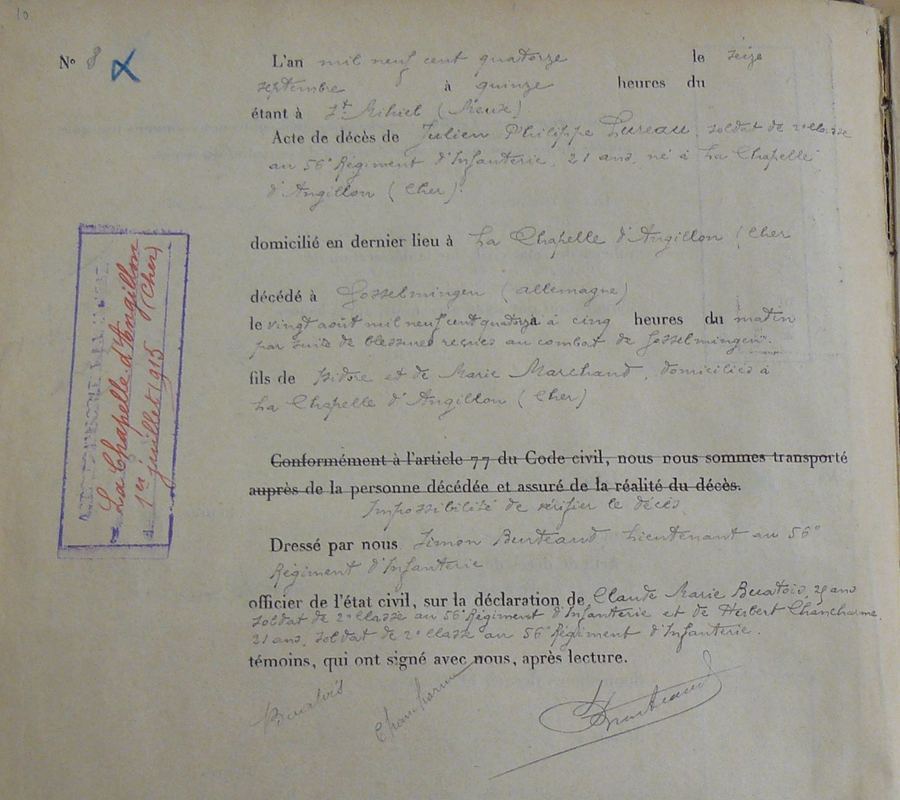 10
N° 8
L'an mil neuf cent quatorze le seize
septembre à quinze heures du
étant à St Mihiel (Meuse)
Acte de décès de Julien Philippe Lureau, soldat de 2e classe
au 56e Régiment d'Infanterie, 21 ans, né à La Chapelle
d'Angillon (Cher).
domicilié en dernier lieu à La Chapelle d'Angillon (Cher
décédé à Gosselmingen (Allemagne)
le vingt août mil neuf cent quatorze à cinq heures du matin
par suite de blessures reçues au combat de Gosselmingen.
fils de Isidore et de Marie Marchand, domiciliés à
La Chapelle d'Angillon (Cher)
Conformément à l'article 77 du Code civil, nous nous sommes transporté
auprès de la personne décédée et assuré de la réalité du décès.
Impossibilité de vérifier le décès
Dressé par nous Simon Burteaud Lieutenant au 56e
Régiment d'Infanterie
officier de l'état civil, sur la déclaration de Claude Marie Buatois, 29 ans
soldat de 2e classe au 56e Régiment d'Infanterie et de Herbert Chancharme
21 ans, soldat de 2e classe au 56e Régiment d'Infanterie
témoins, qui ont signé avec nous, après lecture.
Buatois Chancharme Burteaud
La Chapelle d'Angillon
(Cher)
1er juillet 1915